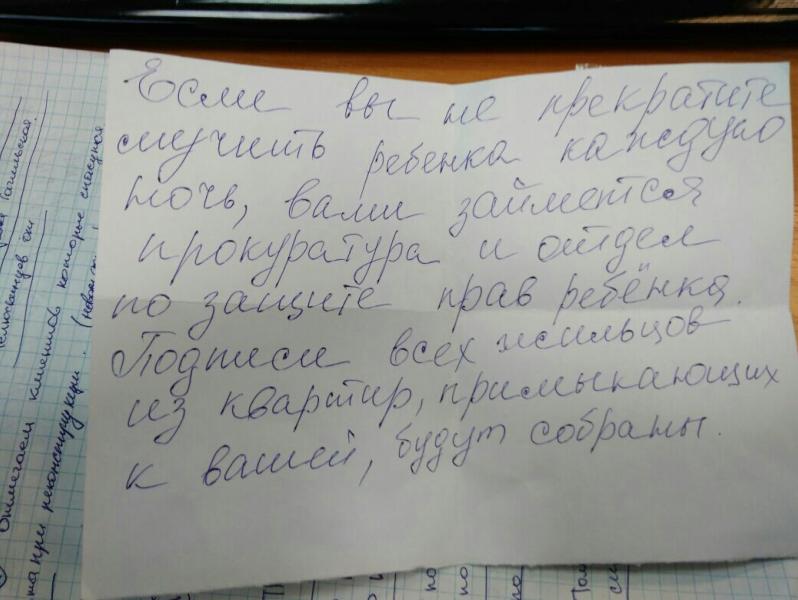 Если вы не прекратите
мучить ребенка каждую
ночь, вами займется
прокуратура и отдел
по защите прав ребёнка.
Подписи всех жильцов
из квартир, примыкающих
к вашей, будут собраны.
Отмечаем клиентов которые
при реконструкции.